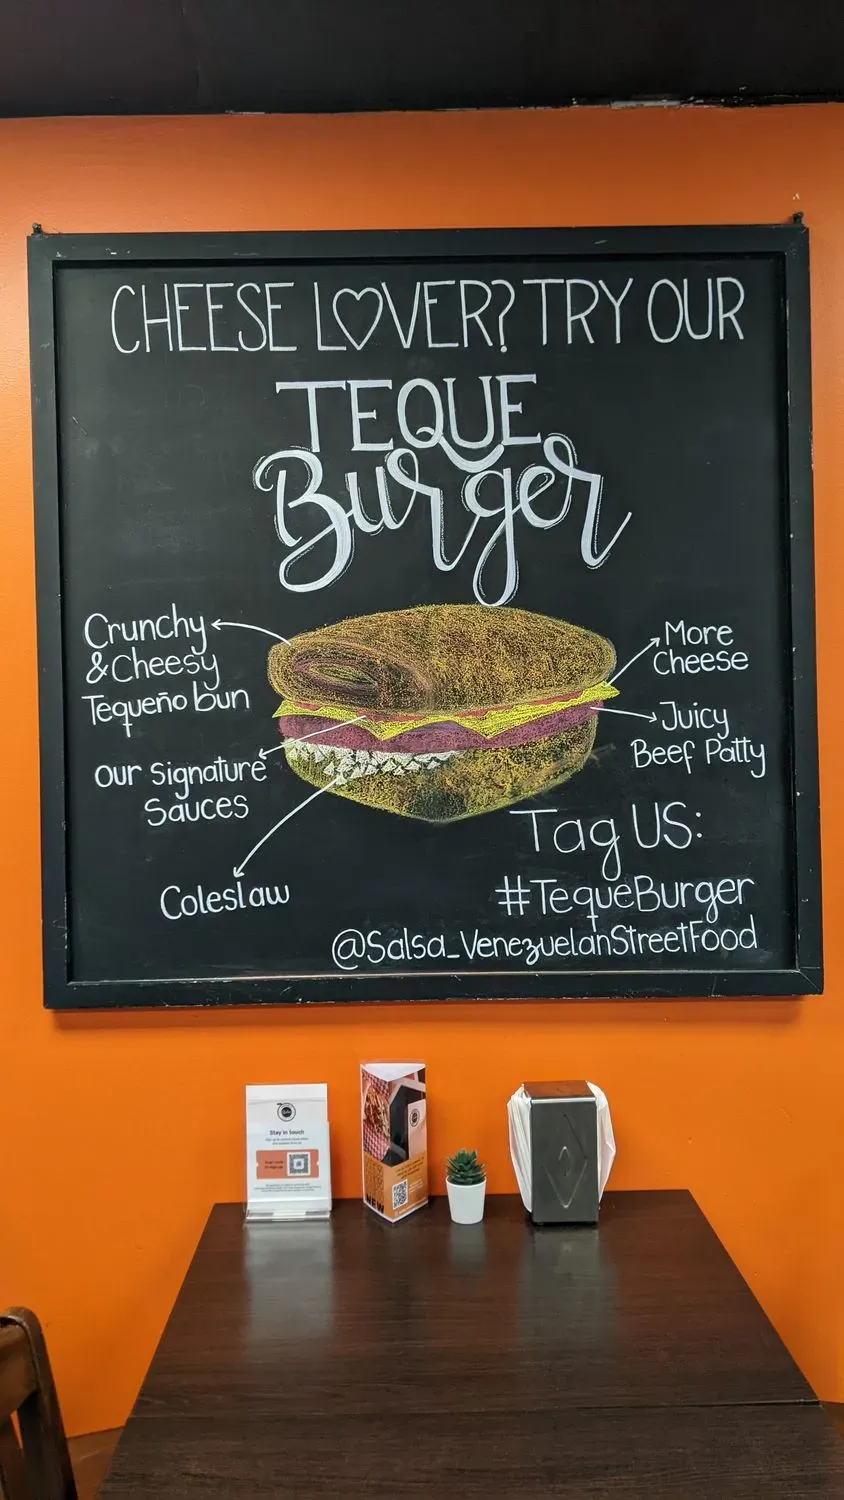 CHEESE LOVER? TRY OUR
TEQUE
Burger
Crunchy
& Cheesy
Tequeño bun
More
Cheese
Juicy
Beef Patty
Our Signature
Sauces
Coleslaw
Tag US:
#TequeBurger
@Salsa_VenezuelanStreetFood
Stay in touch
NEW